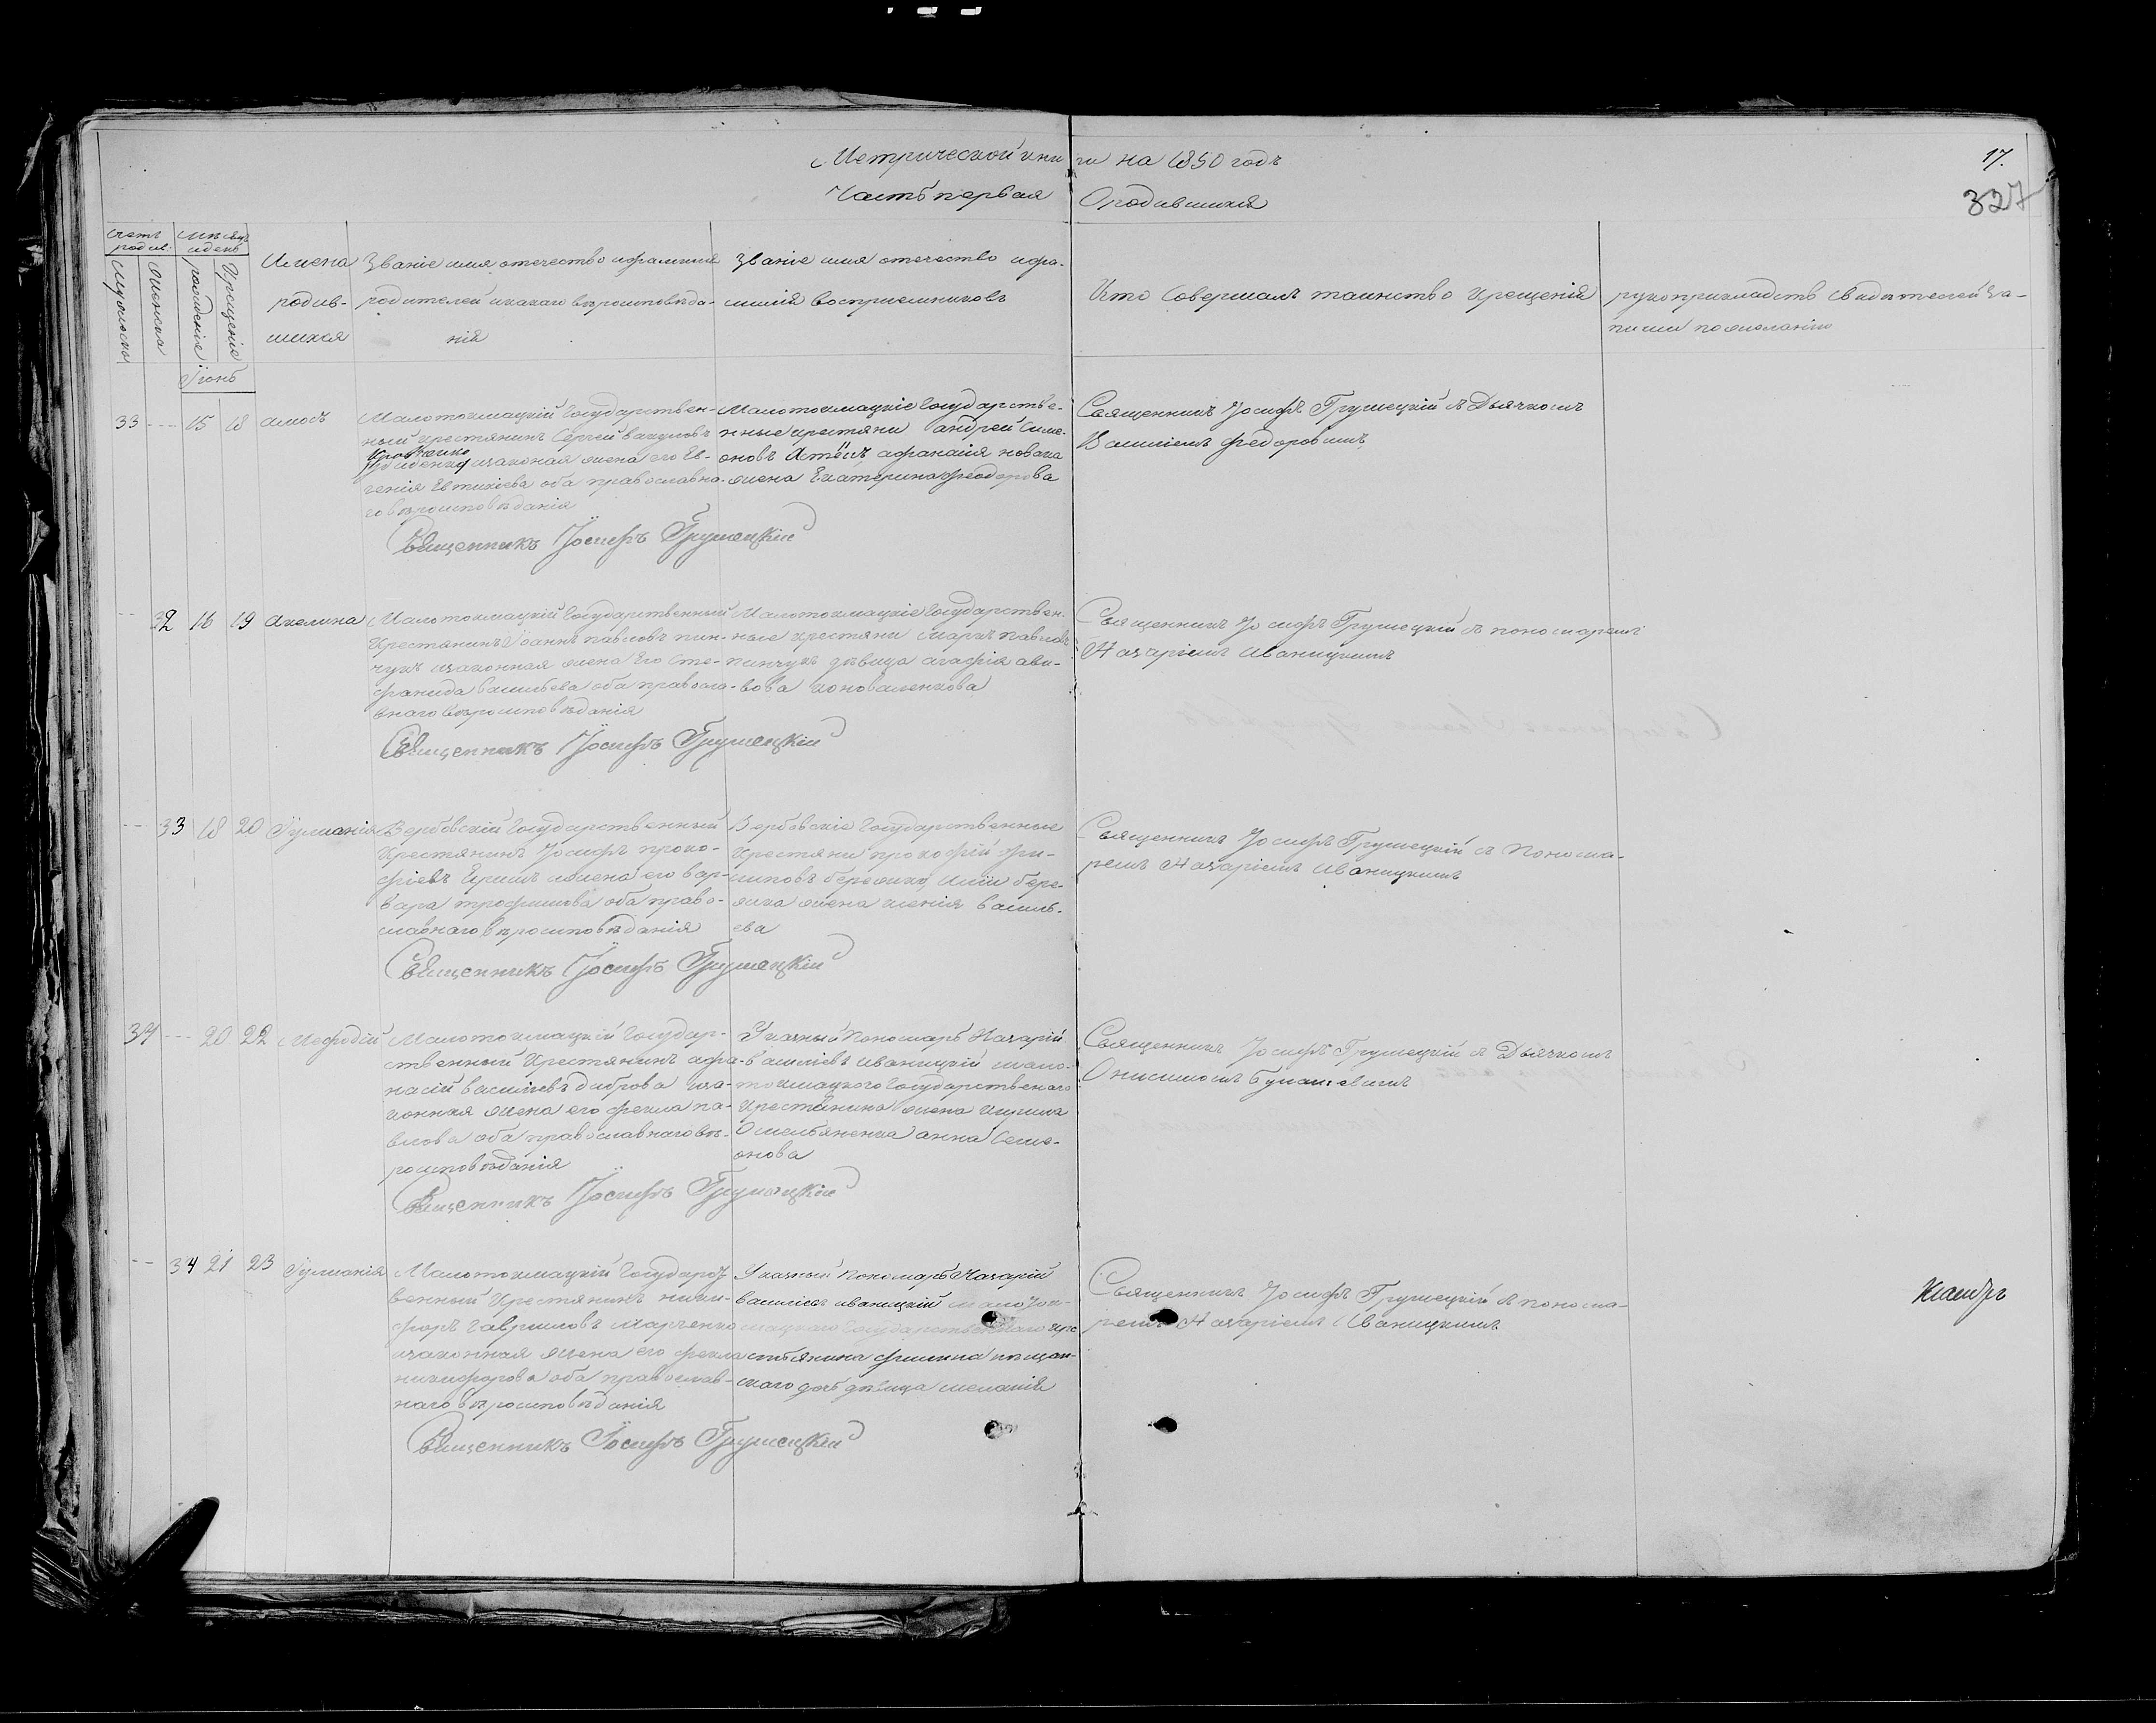 Метрической кни ги на 1850 годъ
17.
Часть первая О родившихся
327
счетъ родив:
мѣсяцъ и день
Мужеска
Женска
рожденіе
Крещеніе
Имена
родив-
шихся
Званіе имя отечество и фамилія
родителей и какаго вѣроисповѣда-
нія
Званіе имя отечество и фа-
милія воспріемниковъ
Кто совершалъ таинство крещенія
рукоприкладств свидѣтелей за-
писи по желанію
Іюнь
33 -- 15 18 Амосъ
Малотокмацкій государствен-
ный крестянинъ Сергей вакуловъ
Кравченко
изаконая жена его Ев-
генія Евтихіева оба православна-
го вѣроисповѣданія
Священникъ Іосифъ Грушецкій
Малотокмацкіе государстве-
нные крестяни андрей Симе-
оновъ афанасія новака
жена Екатерина феодорова
Священникъ Іосифъ Грушецкій съ Дьячкомъ
Василіемъ Федоровимъ
-- 32 16 19 Акелина
Малотокмацкій государственный
Крестянинъ Іоаннъ павловъ пин-
чукъ изаконная жена его Сте-
фанида васильева оба правосла-
внаго вѣроисповѣданія
Священникъ Іосифъ Грушецкій
Малотокмацкіе государствен-
ные крестяни маркъ павловъ
пинчукъ дѣвица агафія
коноваленкова
Священникъ Іосифъ Грушецкій съ пономаремъ
Назаріемъ Иваницкимъ
-- 33 18 20 Іуліанія
Вербовскій государственный
Крестянинъ Іосифъ проко-
фіевъ жена его вар-
вара трофимова оба право-
славнаго вѣроисповѣданія
Священникъ Іосифъ Грушецкій
Вербовскіе государственные
крестяни прокофій фи-
липовъ
жена ксенія василь-
ева
Священникъ Іосифъ Грушецкій съ Понома-
ремъ Назаріемъ Иваницкимъ
34 -- 20 22 Мефодій
Малотокмацкій государ-
ственный Крестянинъ афа-
насій василіевъ диброва иза-
конная жена его фекла па-
влова оба православнаго вѣ-
роисповѣданія
Священникъ Іосифъ Грушецкій
Указный Пономарь Назарій
василіевъ иваницкій мало-
токмацкого государственаго
крестянина жена
Омельяненка анна Симе-
онова
Священникъ Іосифъ Грушецкій съ Дьячкомъ
Онисимомъ
-- 34 21 23 Іуліанія
Малотокмацкій государст
венный Крестянинъ ники-
форъ гавриловъ марченко
изаконная жена его фекла
никифорова оба православ-
наго вѣроисповѣданія
Священникъ Іосифъ Грушецкій
Указный пономарь Назарій
василіевъ иваницкій малоток-
мацкаго государственнаго кре
стьянина филипа пѣщан-
скаго дочь дѣвица меланія
Священникъ Іосифъ Грушецкій съ понома-
ремъ Назаріемъ Иваницкимъ